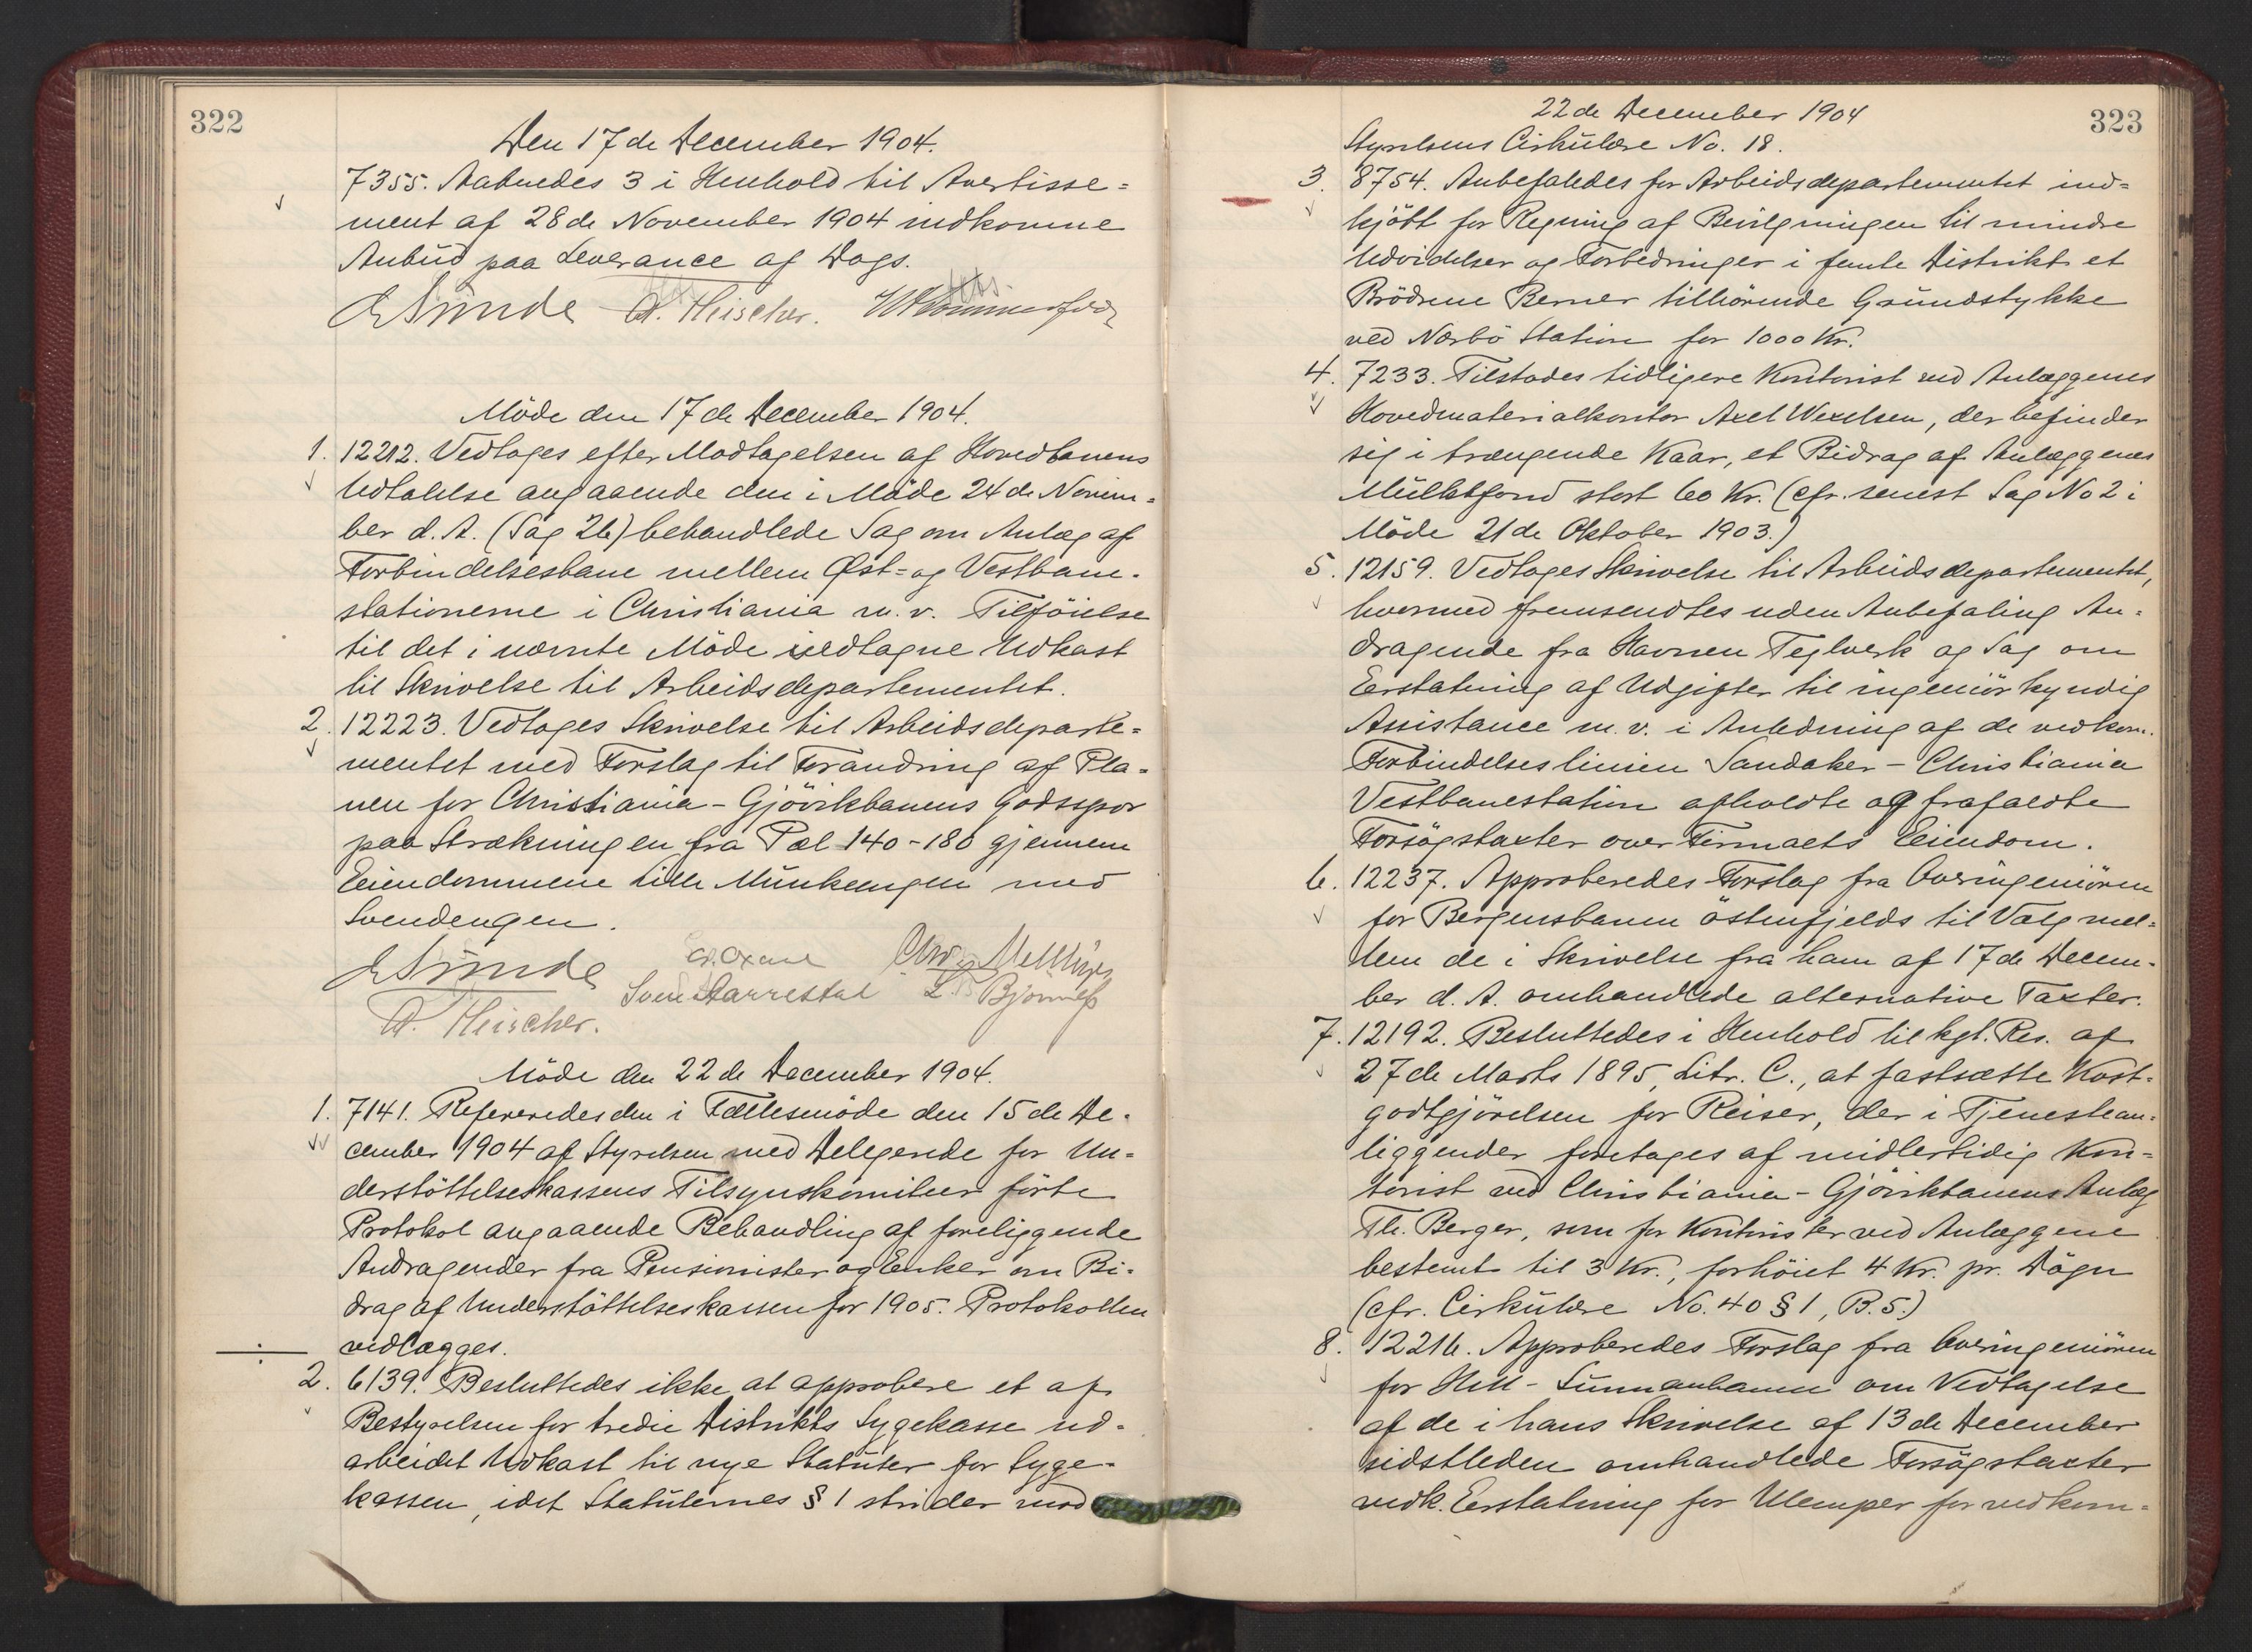 322
Den 17de December 1904.
7355. Aabnedes 3 i Henhold til Avertisse=
ment af 28de November 1904 indkomne
Anbud paa Leverance af Dogs.
E Sunde A. Fleischer.
Möde den 17de December 1904.
1. 12212. Vedtoges efter Modtagelsen af Hovedbanens
Udtalelse angaaende den i Möde 24de Novem=
ber d. A. (Sag 26) behandlede Sag om Anlæg af
Forbindelsesbane mellem Øst= og Vestbane-
stationerne i Christiania m. v. Tilföielse
til det i nævnte Möde vedtagne Udkast
til Skrivelse til Arbeidsdepartementet.
2. 12223. Vedtoges Skrivelse til Arbeidsdeparte=
mentet med Forslag til Forandring af Pla=
nen for Christiania-Gjövikbanens Godsspor
paa Strækningen fra Pæl 140-180 gjennem
Eiendommene Lille Munkengen med
Svendengen.
E Sunde
Sven Aarrestad L. Bjørnness
A. Fleischer.
Möde den 22de December 1904.
1. 7141. Refereredes den i Fællesmöde den 15de De-
cember 1904 af Styrelsen med Delegerede for Un=
derstöttelseskassens Tilsynskomiteer förte
Protokol angaaende Behandling af foreliggende
Andragender fra Pensionister og Enker om Bi-
drag af Understöttelseskassen for 1905. Protokollen
vedlægges.
2. 6139. Besluttedes ikke at approbere et af
Bestyrelsen for tredie Distrikts Sygekasse ud-
arbeidet Udkast til nye Statuter for Syge-
kassen, idet Statuternes § 1 strider mod
22de December 1904
323
Styrelsens Cirkulære No. 18.
3. 8754. Anbefaledes for Arbeidsdepartementet ind=
kjöbt for Regning af Bevilgningen til mindre
Udvidelser og Forbedringer i femte Distrikt et
Brödrene Berner tilhörende Grundstykke
ved Nærbö Station for 1000 Kr.
4. 7233. Tilstodes tidligere Kontorist ved Anlæggenes
Hovedmaterialkontor Axel Wexelsen, der befinder
sig i trængende Kaar, et Bidrag af Anlæggenes
Mulktfond stort 60 Kr. (cfr. senest Sag No 2 i
Möde 21de Oktober 1903.)
5. 12159. Vedtoges Skrivelse til Arbeidsdepartementet,
hvormed fremsendtes uden Anbefaling An=
dragende fra Havnen Teglverk og Sag om
Erstatning af Udgifter til ingeniörkyndig
Assistance m. v. i Anledning af de vedkom.
Forbindelseslinien Sandaker - Christiania
Vestbanestation afholdte og frafaldte
Forsögstaxter over Firmaets Eiendom.
6. 12237. Approberedes Forslag fra Overingeniören
for Bergensbanen östenfjelds til Valg mel=
lem de i Skrivelse fra ham af 17de Decem-
ber d. A. omhandlede alternative Taxter.
7. 12192. Besluttedes i Henhold til kgl. Res. af
27de Marts 1895, Litr. C., at fastsætte Kost-
godtgjörelsen for Reiser, der i Tjenestean-
liggender foretages af midlertidig Kon=
torist ved Christiania-Gjövikbanens Anlæg
Th. Berger, som for Kontorister ved Anlæggene
bestemt til 3 Kr., forhöiet 4 Kr. pr. Dögn
(cfr. Cirkulære No. 40 § 1, B. 5.)
8. 12216. Approberedes Forslag fra Overingeniören
for Hell-Sunnanbanen om Vedtagelse
af de i hans Skrivelse af 13de December
sidstleden omhandlede Forsögstaxter
vedk. Erstatning for Ulemper for vedkom=